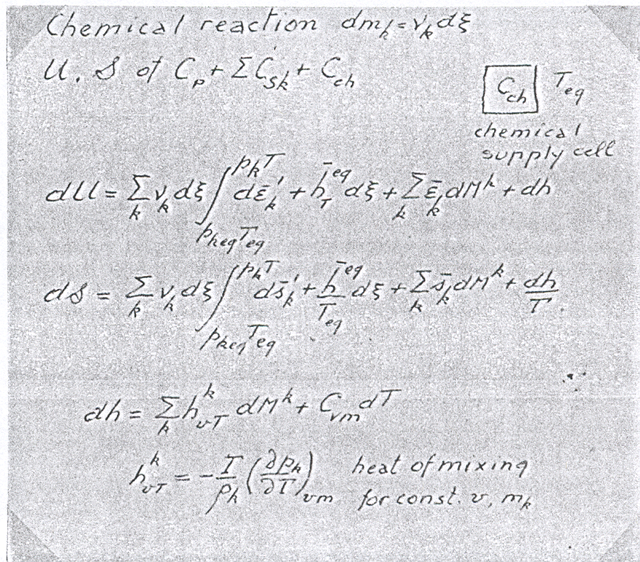 Chemical reaction dm_k = ν_k dξ
U, S of C_p + ΣC_Sk + C_ch
C_ch T_eq
chemical
supply cell
dU = Σ_k ν_k dξ ∫_{p_keq T_eq}^{p_k T} dε̄'_k + h̄_T^eq dξ + Σ_k ε̄_k dM^k + dh
dS = Σ_k ν_k dξ ∫_{p_keq T_eq}^{p_k T} ds̄'_k + h̄^eq/T_eq dξ + Σ_k s̄_k dM^k + dh/T.
dh = Σ_k h_vT^k dM^k + C_vm dT
h_vT^k = -T/ρ_k (∂p_k/∂T)_vm heat of mixing
for const. v, m_k